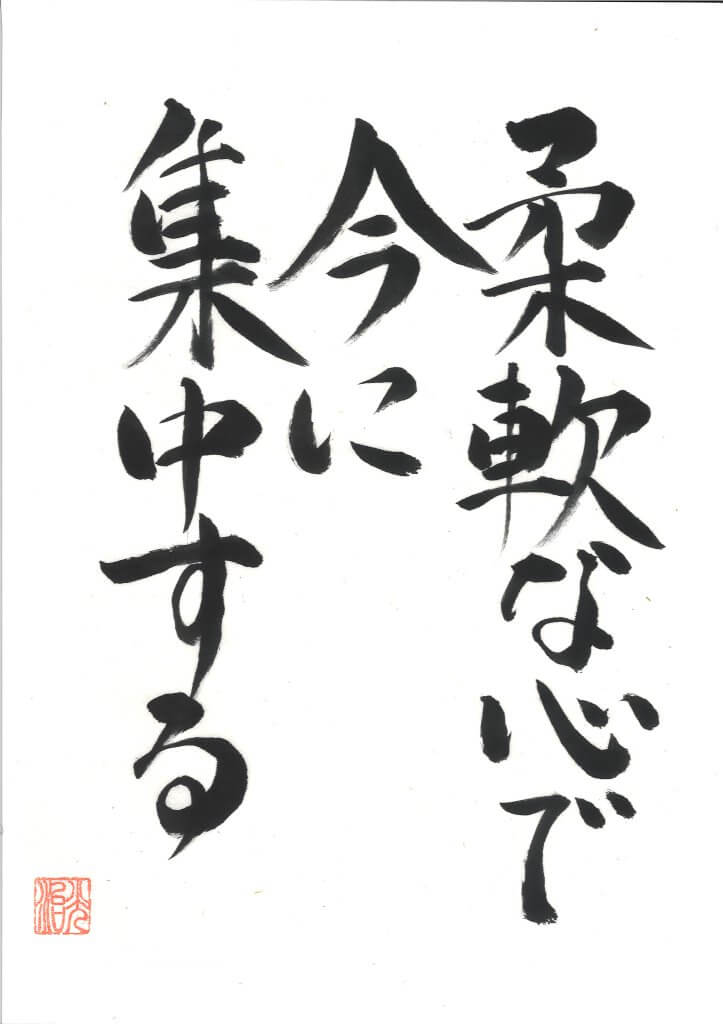 柔軟な心で
今に
集中する